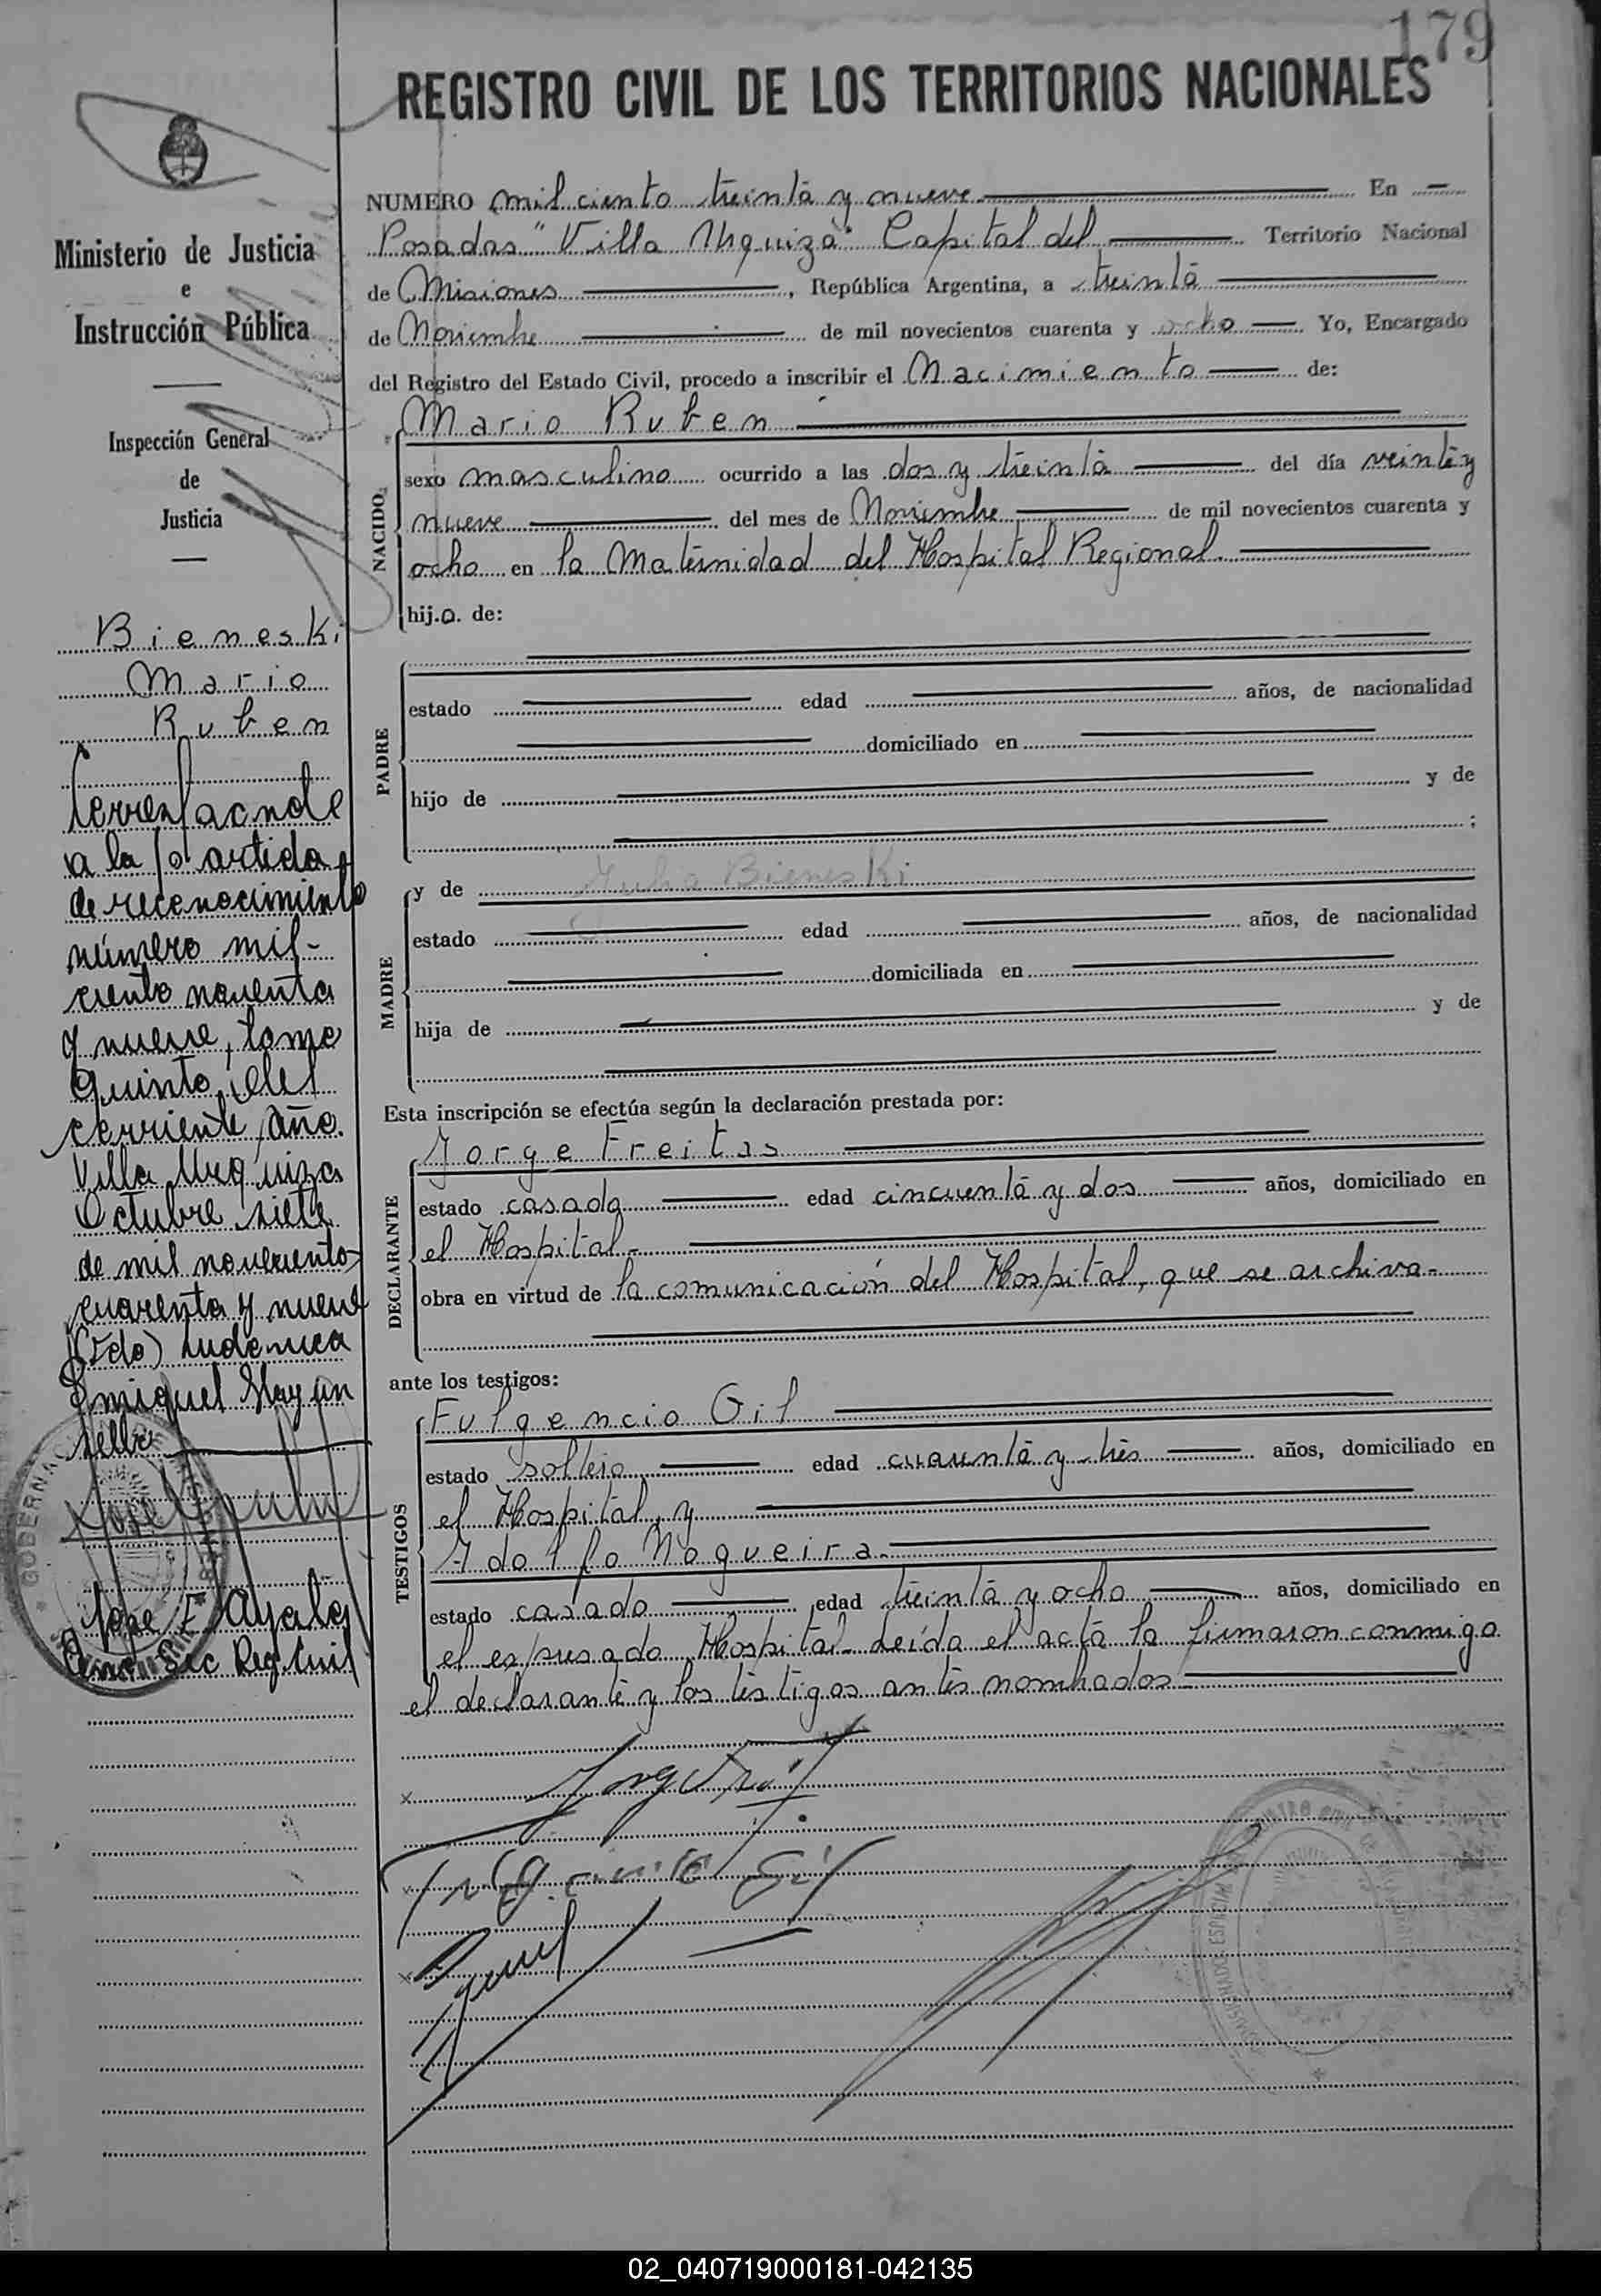 179
REGISTRO CIVIL DE LOS TERRITORIOS NACIONALES
Ministerio de Justicia
e
Instrucción Pública
Inspección General
de
Justicia
Bieneski
Mario
Ruben
a la partida
de reconocimiento
número mil-
ciento noventa
y nueve, tomo
quinto, del
corriente año.
Villa Urquiza
Octubre siete
de mil novecientos
cuarenta y nueve
(Fdo)
Hay un
sello
Jose E. Ayala
Sec Reg Civil
NUMERO mil ciento treinta y nueve En
Posadas "Villa Urquiza" Capital del Territorio Nacional
de Misiones, República Argentina, a treinta
de Noviembre de mil novecientos cuarenta y ocho Yo, Encargado
del Registro del Estado Civil, procedo a inscribir el Nacimiento de:
NACIDO
Mario Ruben
sexo masculino ocurrido a las dos y treinta del día veinte y
nueve del mes de Noviembre de mil novecientos cuarenta y
ocho en la Maternidad del Hospital Regional
hijo. de:
PADRE
estado edad años, de nacionalidad
domiciliado en
hijo de y de
;
MADRE
y de Julia Bieneski
estado edad años, de nacionalidad
domiciliada en
hija de y de
Esta inscripción se efectúa según la declaración prestada por:
DECLARANTE
Jorge Freitas
estado casado edad cincuenta y dos años, domiciliado en
el Hospital-
obra en virtud de la comunicación del Hospital, que se archiva-
ante los testigos:
TESTIGOS
Fulgencio Gil
estado soltero edad cuarenta y tres años, domiciliado en
el Hospital, y
Adolfo Nogueira-
estado casado edad treinta y ocho años, domiciliado en
el expresado Hospital- Leída el acta la firmaron conmigo
el declarante y los testigos antes nombrados
02_040719000181-042135